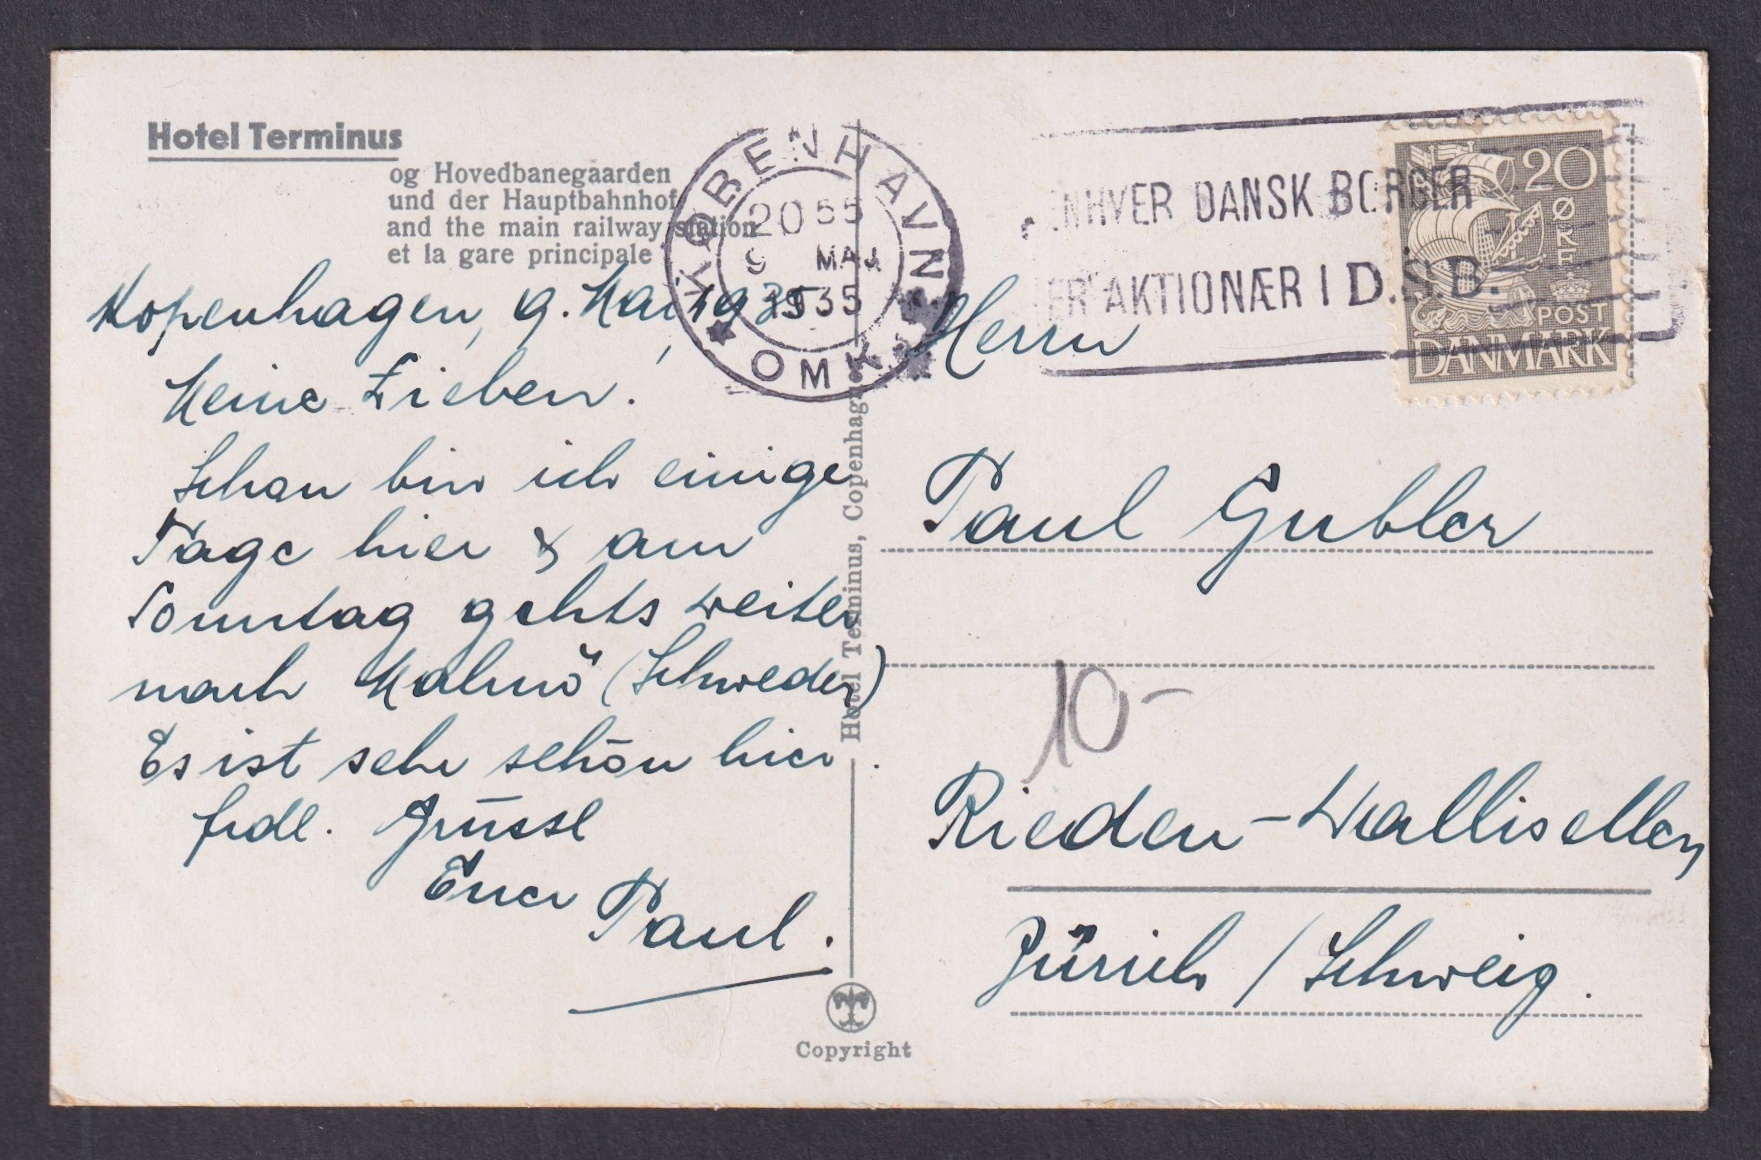 Hotel Terminus
og Hovedbanegaarden
und der Hauptbahnhof
and the main railway station
et la gare principale
KØBENHAVN
20 55
9 MAJ
1935
OMK.
ENHVER DANSK BORGER
ER AKTIONÆR I D.S.B.
20
ØRE
POST
DANMARK
Kopenhagen, 9. Mai 1935
Meine Lieben.
Schon bin ich einige
Tage hier & am
Sonntag gehts weiter
nach Malmö (Schweden)
Es ist sehr schön hier.
frdl. Grüsse
Euer Paul.
Hotel Terminus, Copenhagen
Herrn
Paul Gubler
10-
Rieden-Wallisellen
Zürich / Schweiz.
Copyright